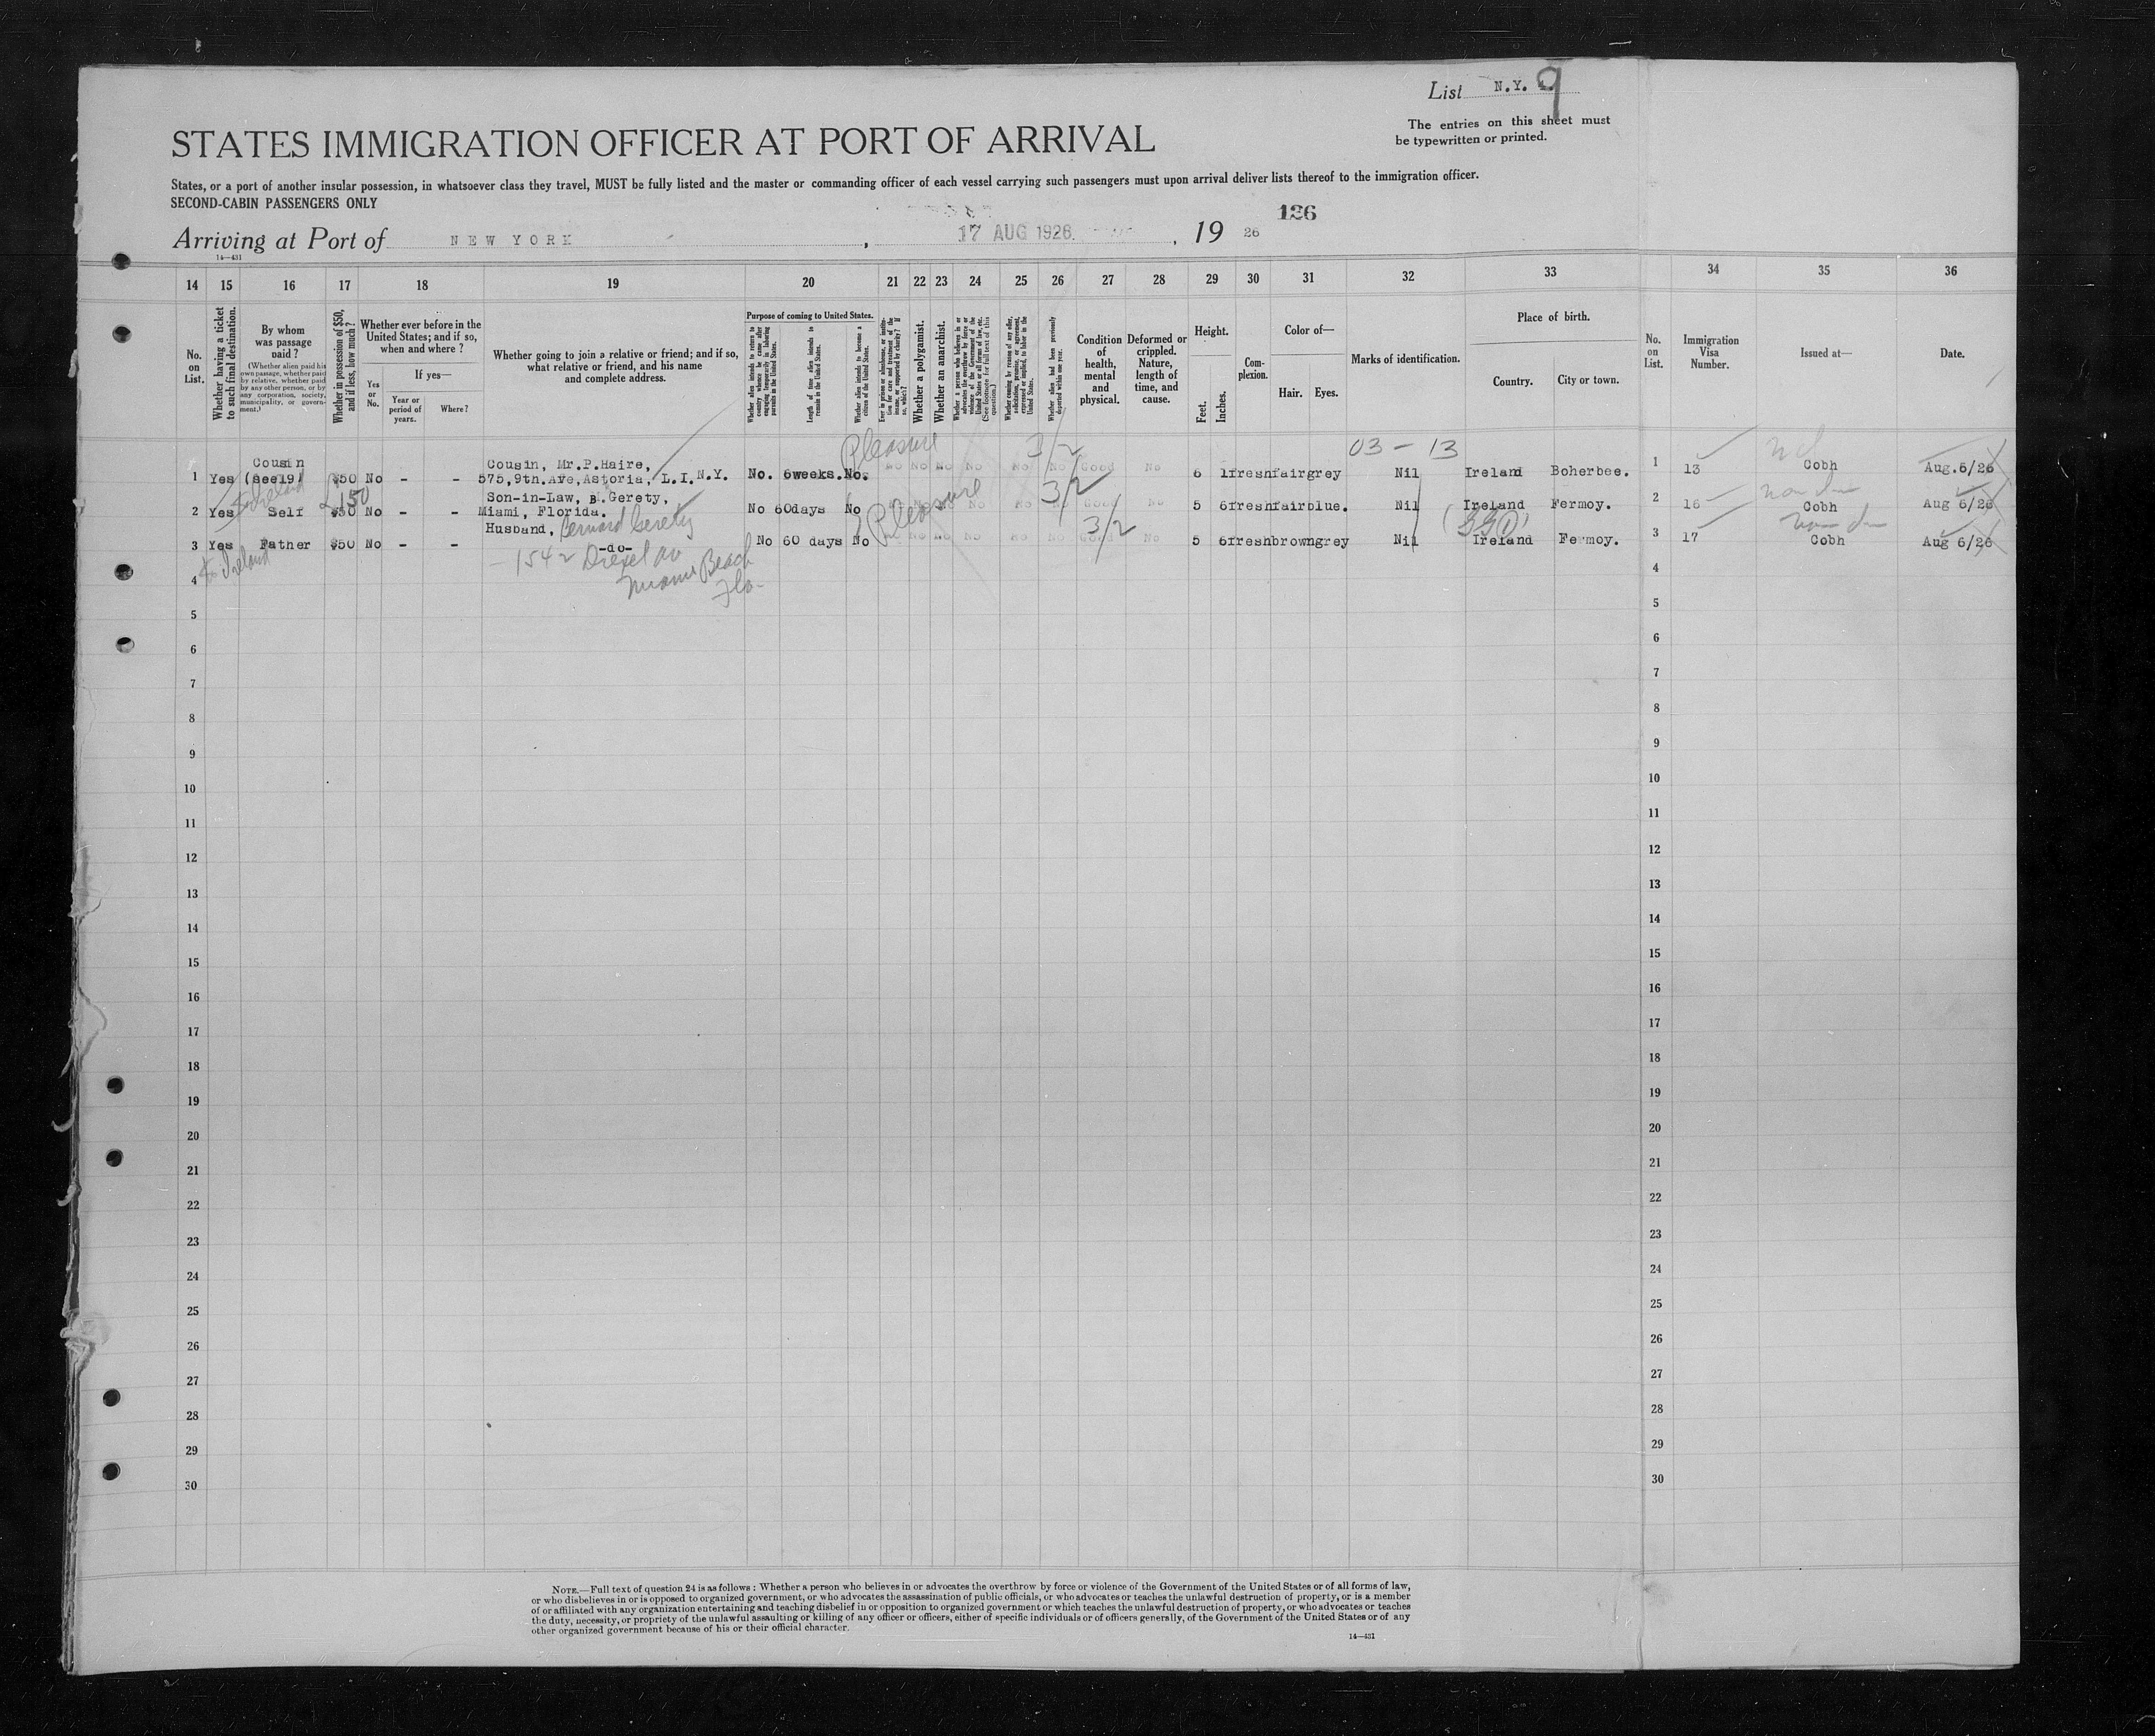 List N.Y. 9
The entries on this sheet must
be typewritten or printed.
STATES IMMIGRATION OFFICER AT PORT OF ARRIVAL
States, or a port of another insular possession, in whatsoever class they travel, MUST be fully listed and the master or commanding officer of each vessel carrying such passengers must upon arrival deliver lists thereof to the immigration officer.
SECOND-CABIN PASSENGERS ONLY
136
Arriving at Port of NEW YORK, 17 AUG 1926, 19 26
14—431
14 15 16 17 18 19 20 21 22 23 24 25 26 27 28 29 30 31 32 33 34 35 36
No. on List.
Whether having a ticket to such final destination.
By whom was passage paid?
(Whether alien paid his own passage, whether paid by relative, whether paid by any other person, or by any corporation, society, municipality, or government.)
Whether in possession of $50, and if less, how much?
Whether ever before in the United States; and if so, when and where?
Yes or No.
If yes—
Year or period of years.
Where?
Whether going to join a relative or friend; and if so, what relative or friend, and his name and complete address.
Purpose of coming to United States.
Whether alien intends to return to country whence he came after engaging temporarily in laboring pursuits in the United States.
Length of time alien intends to remain in the United States.
Whether alien intends to become a citizen of the United States.
Ever in prison or almshouse, or institution for care and treatment of the insane, or supported by charity? If so, which?
Whether a polygamist.
Whether an anarchist.
Whether a person who believes in or advocates the overthrow by force or violence of the Government of the United States or all forms of law, etc. (See footnote for full text of this question.)
Whether coming by reason of any offer, solicitation, promise, or agreement, expressed or implied, to labor in the United States.
Whether alien had been previously deported within one year.
Condition of health, mental and physical.
Deformed or crippled. Nature, length of time, and cause.
Height.
Feet. Inches.
Complexion.
Color of—
Hair. Eyes.
Marks of identification.
Place of birth.
Country. City or town.
No. on List.
Immigration Visa Number.
Issued at—
Date.
Pleasure 3/2 03 – 13
Cousin Cousin, Mr.P.Haire,
1 Yes (see19) $50 No - - 575,9th.Ave,Astoria, L.I.N.Y. No. 6weeks. No. No No No No No No Good No 6 1 fresh fair grey Nil Ireland Boherbee. 1 13 Cobh Aug.5/26
to Ireland 150 Son-in-Law, B.Gerety, Pleasure 3/2
2 Yes Self $50 No - - Miami, Florida. No 60days No No No No No No Good No 5 6 fresh fair blue. Nil Ireland Fermoy. 2 16 Cobh Aug 6/26
Husband, Bernard Gerety 3/2
3 Yes Father $50 No - - -do- No 60 days No No No No No No Good No 5 6 fresh brown grey Nil Ireland Fermoy. 3 17 Cobh Aug 6/26
to Ireland – 1542 Drexel av
Miami Beach
Fla-
4 4
5 5
6 6
7 7
8 8
9 9
10 10
11 11
12 12
13 13
14 14
15 15
16 16
17 17
18 18
19 19
20 20
21 21
22 22
23 23
24 24
25 25
26 26
27 27
28 28
29 29
30 30
NOTE.—Full text of question 24 is as follows: Whether a person who believes in or advocates the overthrow by force or violence of the Government of the United States or of all forms of law,
or who disbelieves in or is opposed to organized government, or who advocates the assassination of public officials, or who advocates or teaches the unlawful destruction of property, or is a member
of or affiliated with any organization entertaining and teaching disbelief in or opposition to organized government or which teaches the unlawful destruction of property, or who advocates or teaches
the duty, necessity, or propriety of the unlawful assaulting or killing of any officer or officers, either of specific individuals or of officers generally, of the Government of the United States or of any
other organized government because of his or their official character.
14—431